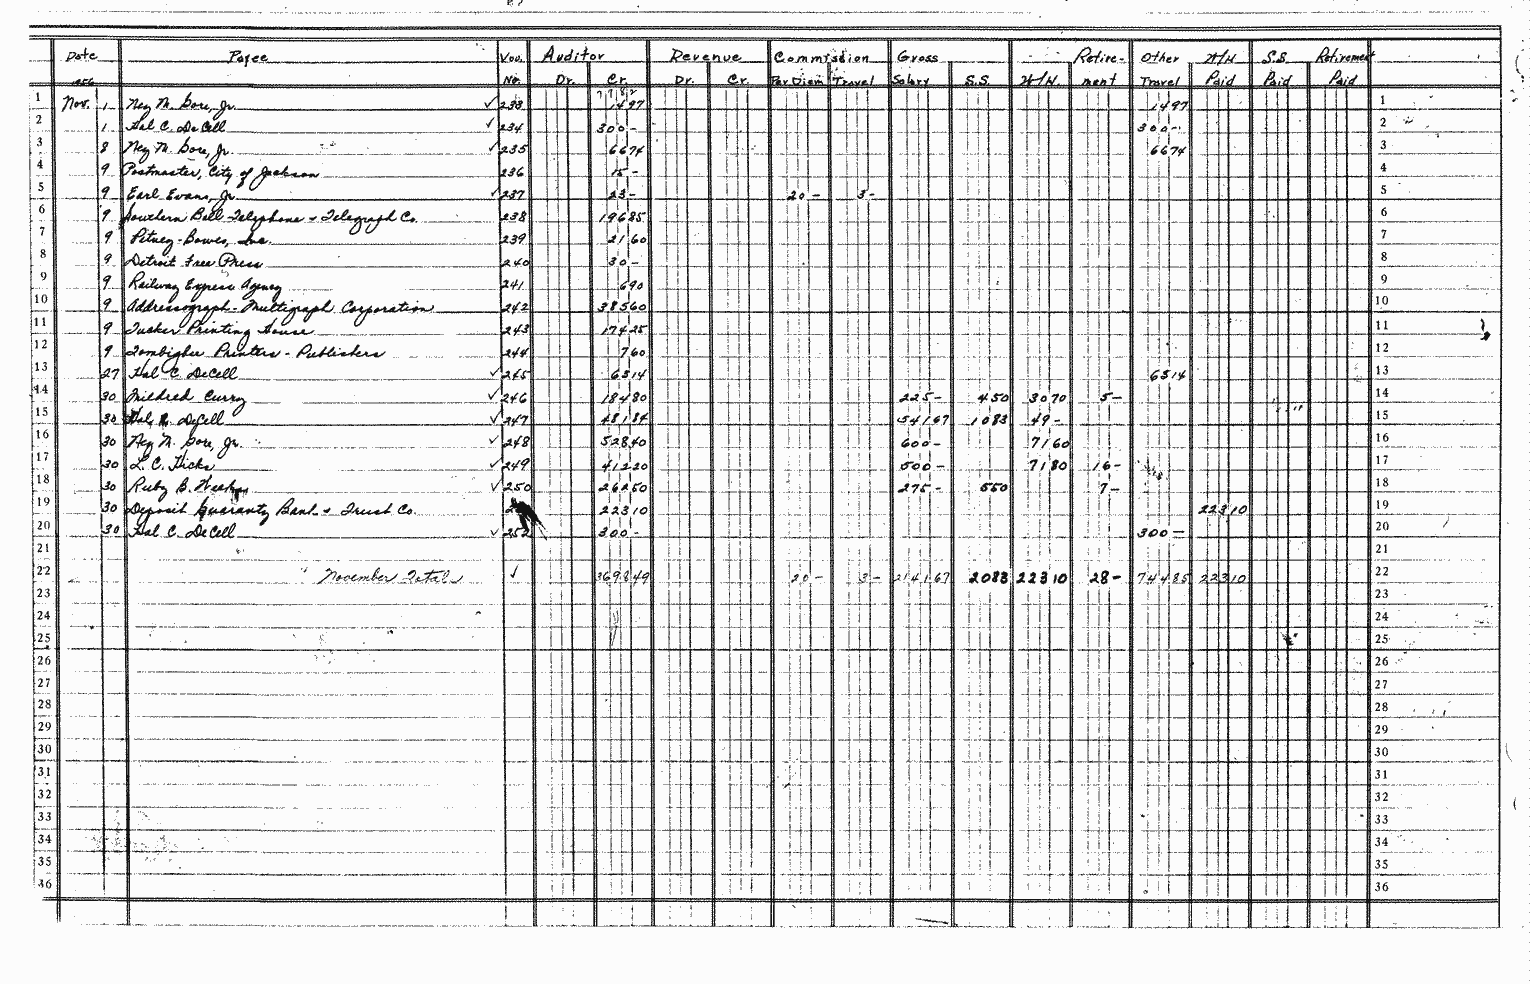 Date Payee Vou. Auditor Revenue Commission Gross Retire- Other W/H S.S. Retirement
1956 No. Dr. Cr. Dr. Cr. Per Diem Travel Salary S.S. W/H. ment Travel Paid Paid Paid
1 Nov. 1 Ney M. Gore, Jr. ✓ 233 1497 1497 1
2 1 Hal C. DeCell ✓ 234 300- 300- 2
3 8 Ney M. Gore, Jr. ✓ 235 6674 6674 3
4 9 Postmaster, City of Jackson 236 15- 4
5 9 Earl Evans, Jr. ✓ 237 23- 20- 3- 5
6 9 Southern Bell Telephone & Telegraph Co. 238 19685 6
7 9 Pitney-Bowes, Inc. 239 2160 7
8 9 Detroit Free Press 240 30- 8
9 9 Railway Express Agency 241 690 9
10 9 Addressograph-Multigraph Corporation 242 38560 10
11 9 Tucker Printing House 243 17425 11
12 9 Tombigbee Printers - Publishers 244 760 12
13 27 Hal C. DeCell ✓ 245 6314 6314 13
14 30 Mildred Curry ✓ 246 18480 225- 450 3070 5- 14
15 30 Hal C. DeCell ✓ 247 48184 54167 1083 49- 15
16 30 Ney M. Gore, Jr. ✓ 248 52840 600- 7160 16
17 30 L. C. Hicks ✓ 249 41220 500- 7180 16- 17
18 30 Ruby B. ✓ 250 26250 275- 550 7- 18
19 30 Deposit Guaranty Bank & Trust Co. 22310 22310 19
20 30 Hal C. DeCell ✓ 252 300- 300- 20
21 21
22 November Total ✓ 369849 20- 3- 214167 2083 22310 28- 74485 22310 22
23 23
24 24
25 25
26 26
27 27
28 28
29 29
30 30
31 31
32 32
33 33
34 34
35 35
36 36